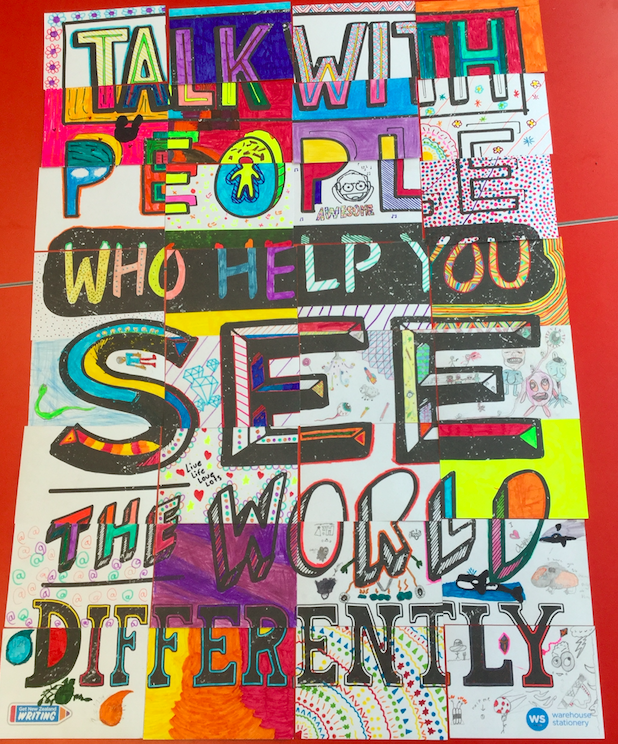 TALK WITH
PEOPLE
AWESOME
WHO HELP YOU
SEE
Live
Life
Love
Lots
THE WORLD
DIFFERENTLY
Get New Zealand
WRITING
WS warehouse
stationery